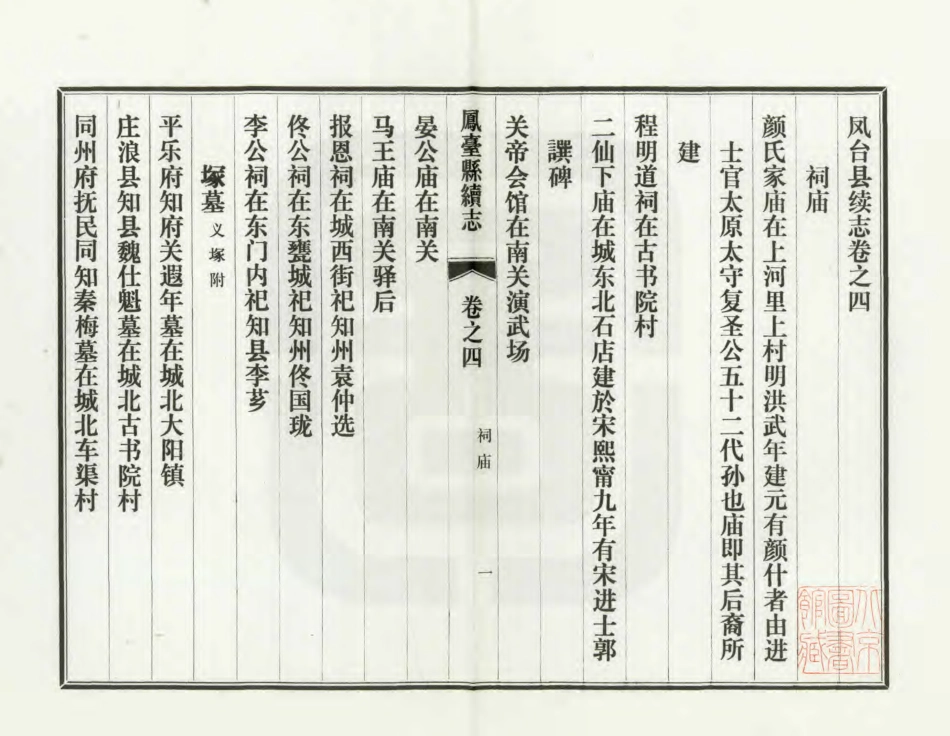 凤台县续志卷之四
祠庙
颜氏家庙在上河里上村明洪武年建元有颜什者由进
士官太原太守复圣公五十二代孙也庙即其后裔所
建
程明道祠在古书院村
二仙下庙在城东北石店建於宋熙甯九年有宋进士郭
譔碑
关帝会馆在南关演武场
鳳臺縣續志 卷之四 祠庙 一
晏公庙在南关
马王庙在南关驿后
报恩祠在城西街祀知州袁仲选
佟公祠在东甕城祀知州佟国珑
李公祠在东门内祀知县李芗
塚墓 义塚附
平乐府知府关遐年墓在城北大阳镇
庄浪县知县魏仕魁墓在城北古书院村
同州府抚民同知秦梅墓在城北车渠村
北京圖書館藏